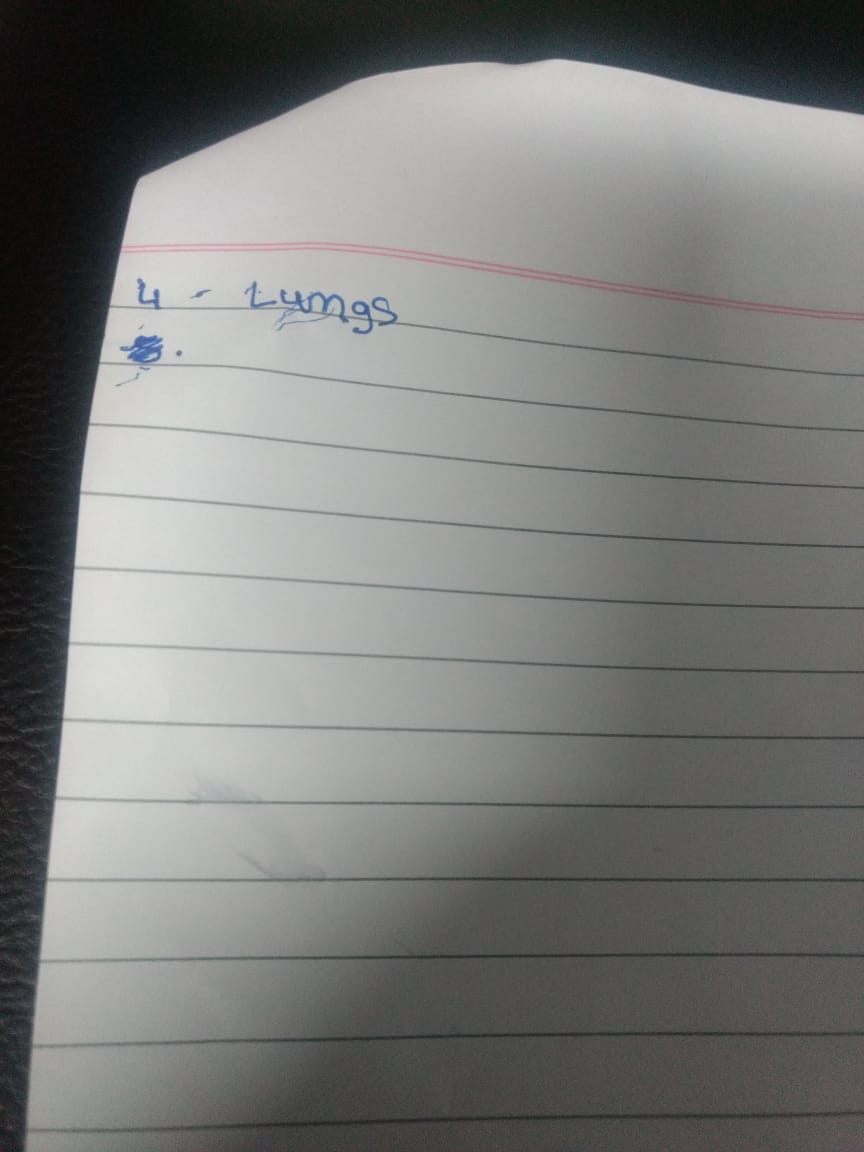 4 - Lungs